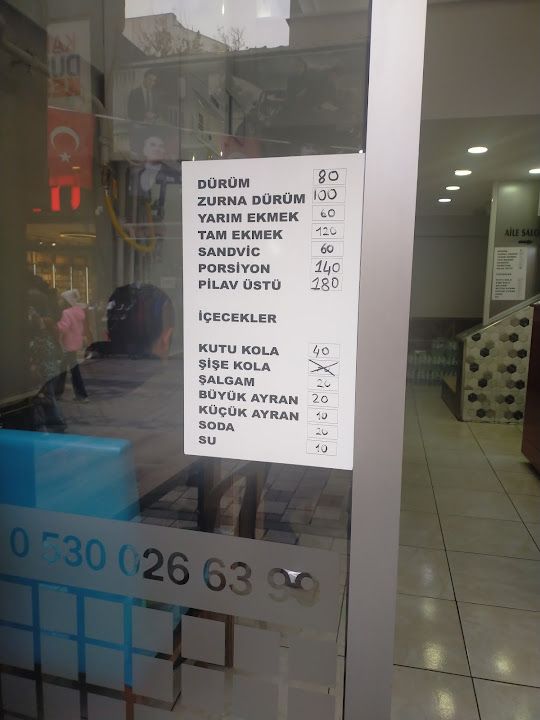 DÜRÜM 80
ZURNA DÜRÜM 100
YARIM EKMEK 60
TAM EKMEK 120
SANDVİC 60
PORSİYON 140
PİLAV ÜSTÜ 180
İÇECEKLER
KUTU KOLA 40
ŞİŞE KOLA
ŞALGAM 20
BÜYÜK AYRAN 20
KÜÇÜK AYRAN 10
SODA 20
SU 10
0 530 026 63 99
AİLE